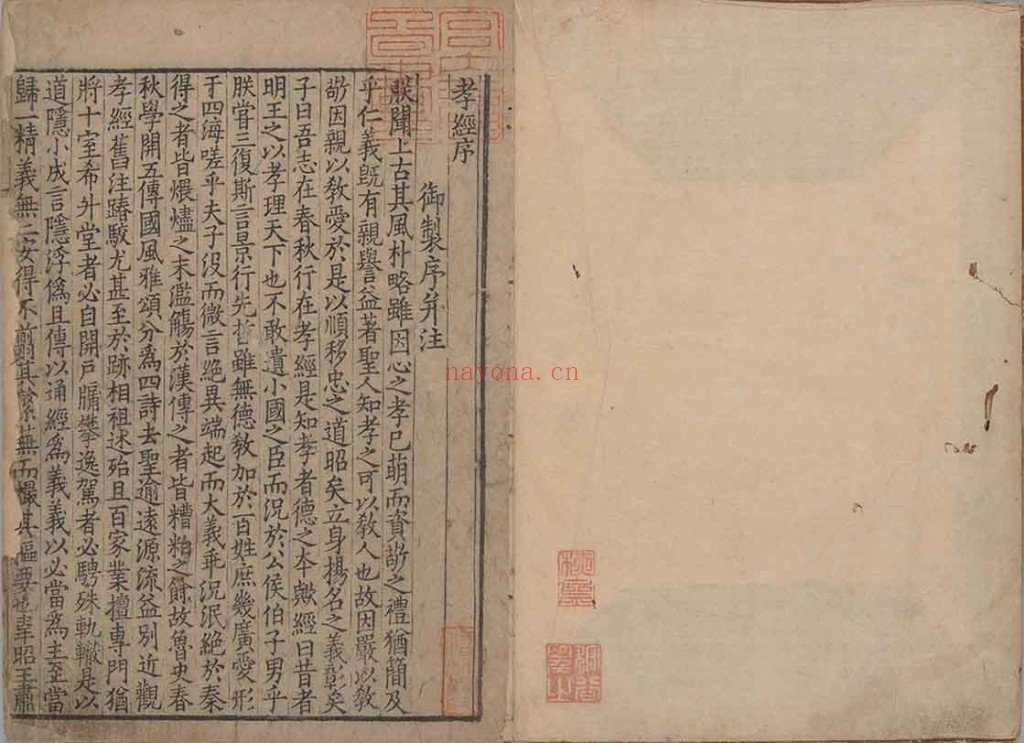 孝經序
御製序并注
朕聞上古其風朴略雖因心之孝已萌而資敬之禮猶簡及
乎仁義旣有親譽益著聖人知孝之可以敎人也故因嚴以敎
敬因親以敎愛於是以順移忠之道昭矣立身揚名之義彰矣
子曰吾志在春秋行在孝經是知孝者德之本歟經曰昔者
明王之以孝理天下也不敢遺小國之臣而況於公侯伯子男乎
朕甞三復斯言景行先哲雖無德敎加於百姓庶幾廣愛形
于四海嗟乎夫子沒而微言絶異端起而大義乖況泯絶於秦
得之者皆煨燼之末濫觴於漢傳之者皆糟粕之餘故魯史春
秋學開五傳國風雅頌分爲四詩去聖逾遠源流益別近觀
孝經舊注踳駮尤甚至於跡相祖述殆且百家業擅專門猶
將十室希升堂者必自開戸牖攀逸駕者必騁殊軌轍是以
道隱小成言隱浮僞且傳以通經爲義義以必當爲主至當
歸一精義無二安得不翦其繁蕪而撮其樞要也韋昭王肅
nayona.cn